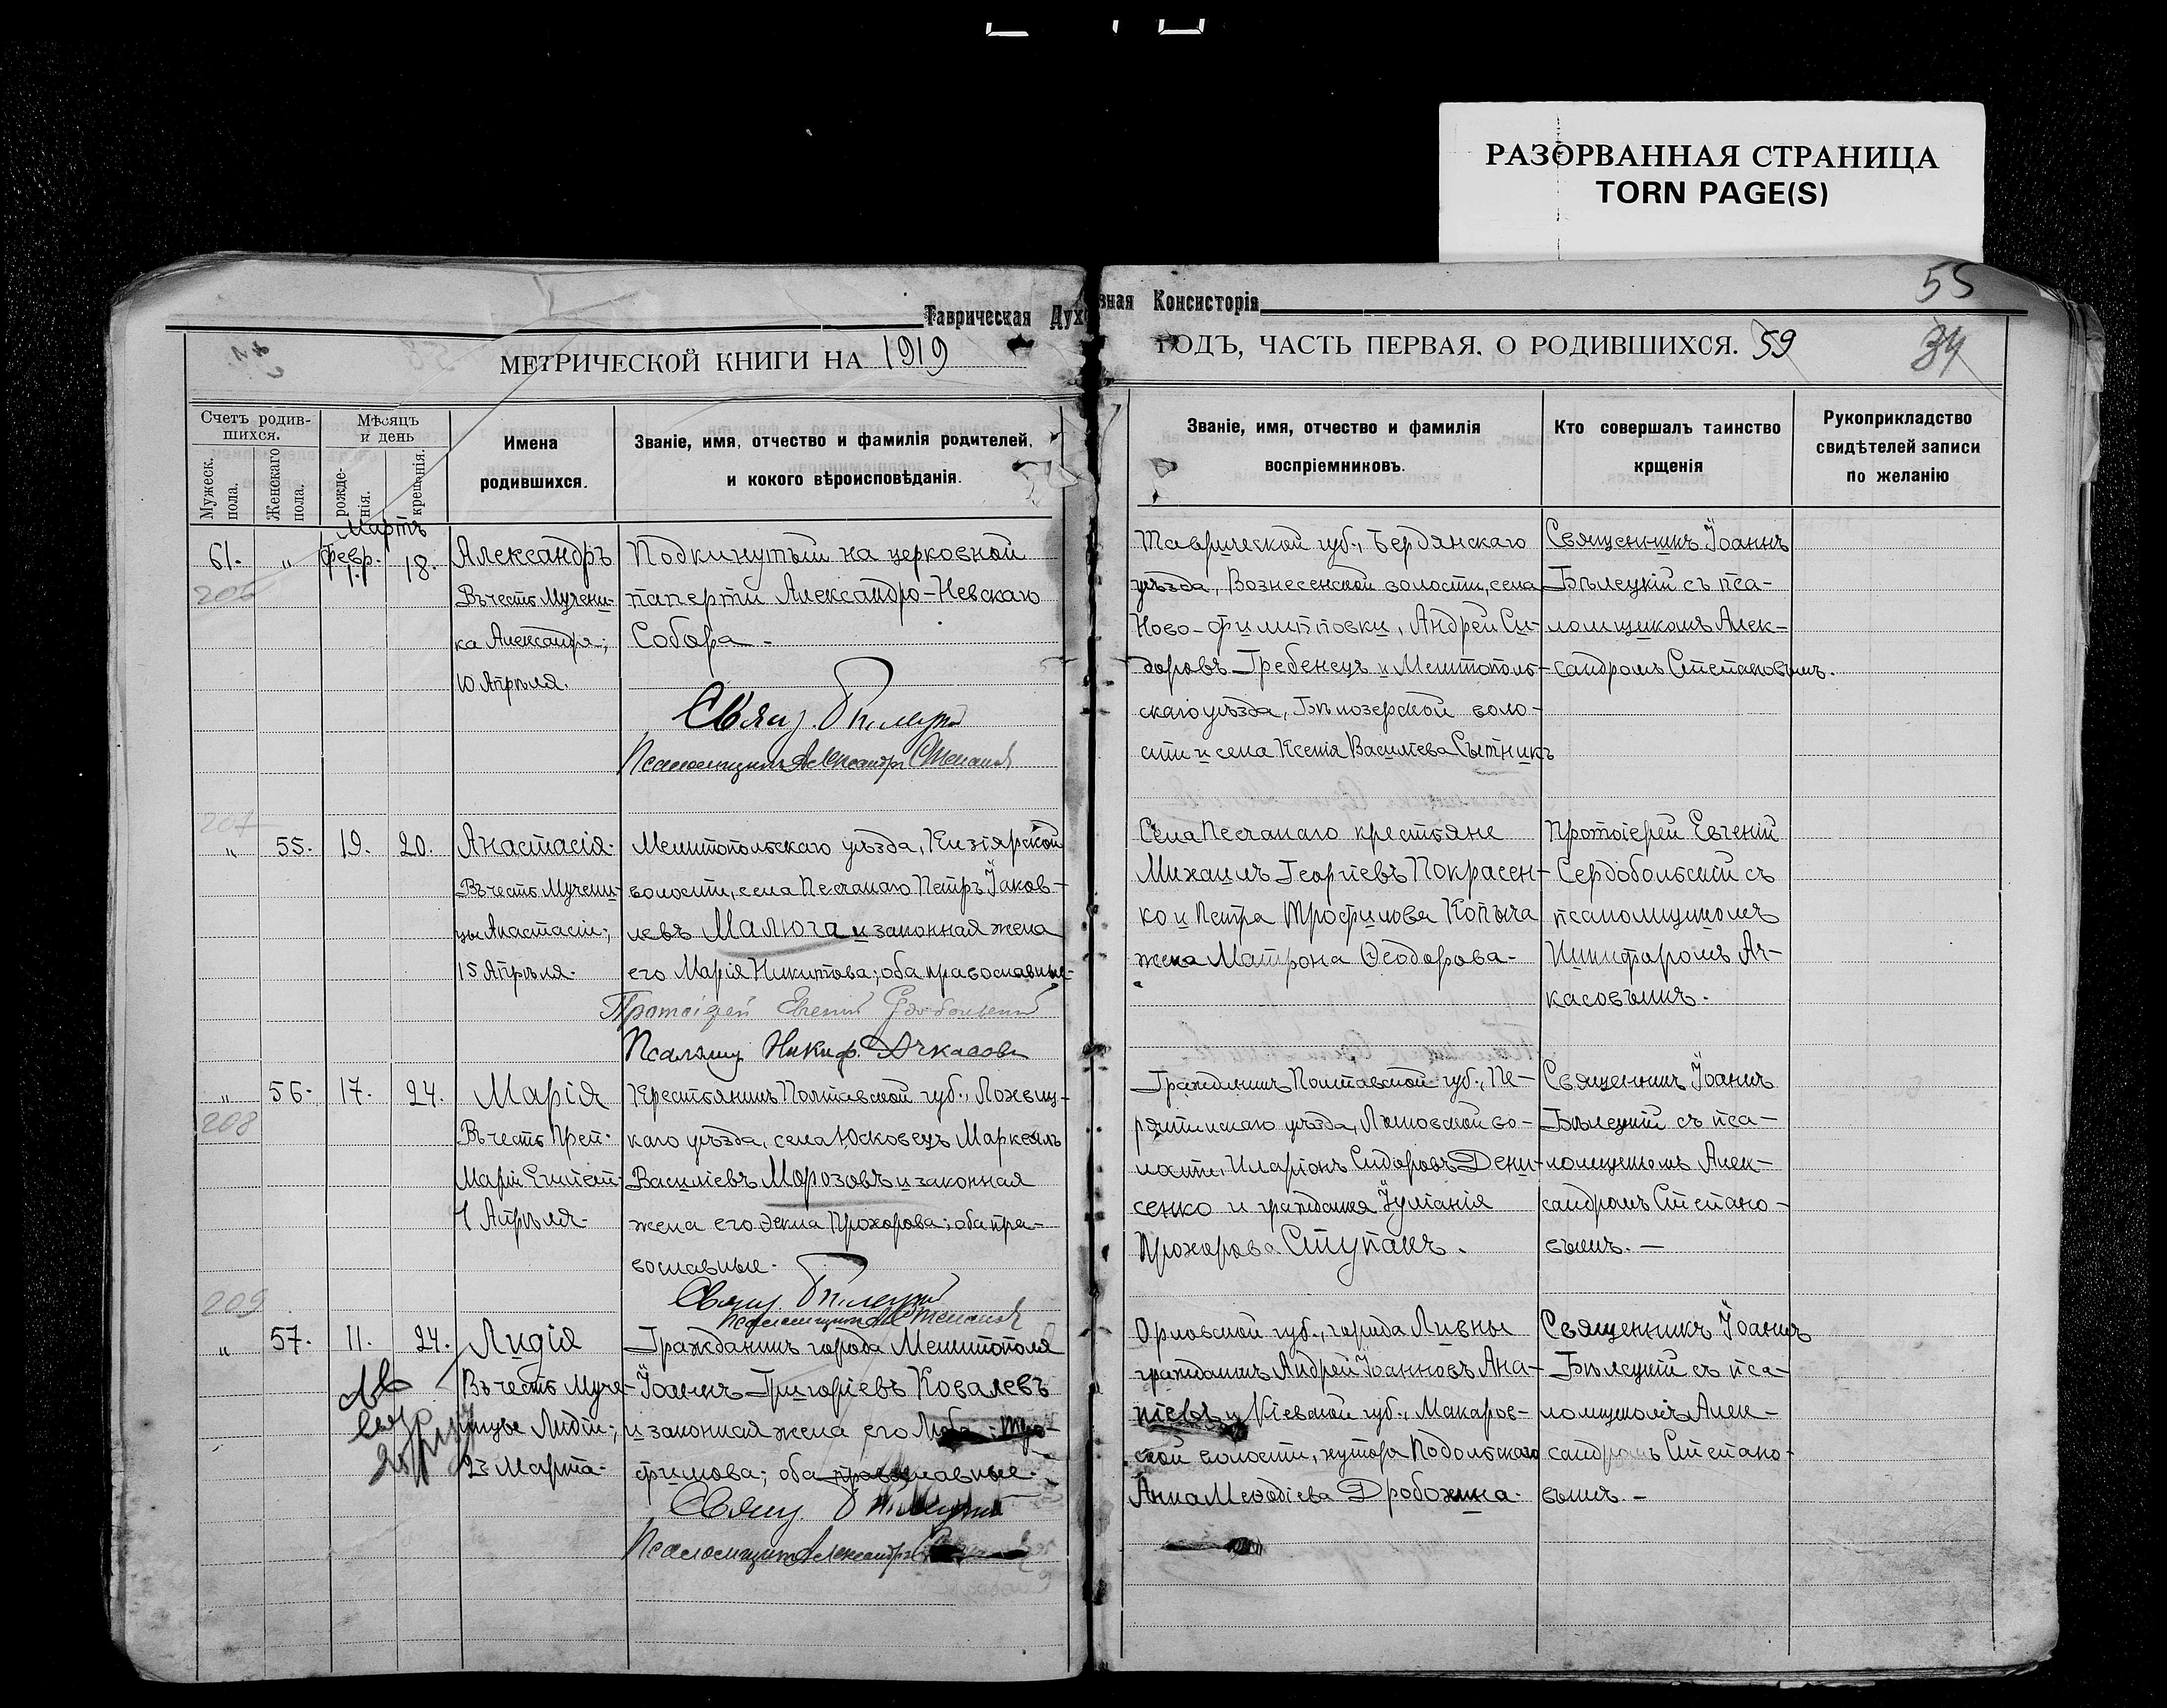 РАЗОРВАННАЯ СТРАНИЦА
TORN PAGE(S)
Таврическая Духовная Консисторія
55
МЕТРИЧЕСКОЙ КНИГИ НА 1919
ГОДЪ, ЧАСТЬ ПЕРВАЯ, О РОДИВШИХСЯ. 59
34
Счетъ родив-
шихся.
Мужеск. пола.
Женскаго пола.
Мѣсяцъ
и день
рожде-
нія.
крещенія.
Имена
родившихся.
Званіе, имя, отчество и фамилія родителей,
и кокого вѣроисповѣданія.
Званіе, имя, отчество и фамилія
воспріемниковъ.
Кто совершалъ таинство
крщенія
Рукоприкладство
свидѣтелей записи
по желанію
Мартъ
61. " Февр. 1. 18.
206
Александръ
Въ честь Мучени-
ка Александра;
10 Апрѣля.
Подкинутый на церковной
паперти Александро-Невскаго
Собора.
Свящ. Бѣлецкій
Псаломщикъ Александръ Степановъ
Таврической губ., Бердянскаго
уѣзда, Вознесенской волости, села
Ново-Филипповки, Андрей Си-
доровъ Гребенецъ и Мелитополь-
скаго уѣзда, Бѣлозерской воло-
сти и села Ксенія Василіева Сытникъ
Священникъ Іоаннъ
Бѣлецкій съ пса-
ломщикомъ Алек-
сандромъ Степановымъ.
207
" 55. 19. 20.
Анастасія.
Въ честь Мучени-
цы Анастасіи;
15 Апрѣля.
Мелитопольскаго уѣзда, Кизіярской
волости, села Песчанаго Петръ Іаков-
левъ Малюга и законная жена
его Марія Никитова; оба православные.
Протоіерей Евгеній Сердобольскій
Псаломщ. Никиф. Ачкасовъ
Села Песчанаго крестьяне
Михаилъ Георгіевъ Покрасен-
ко и Петра Трофимова Копыча
жена Матрона Ѳеодорова.
Протоіерей Евгеній
Сердобольскій съ
псаломщикомъ
Никифоромъ Ач-
касовымъ.
" 56. 17. 24.
208
Марія
Въ честь Преп.
Маріи Египет.
1 Апрѣля.
Крестьянинъ Полтавской губ., Лохвиц-
каго уѣзда, села Юсковецъ Маркеллъ
Василіевъ Морозовъ и законная
жена его Ѳекла Прохорова; оба пра-
вославные.
Свящ. Бѣлецкій
Псаломщикъ Ал. Степановъ
Гражданинъ Полтавской губ., Пи-
рятинскаго уѣзда, во-
лости, Иларіонъ Сидоровъ Дени-
сенко и гражданка Іуліанія
Прохорова Ступакъ.
Священникъ Іоаннъ
Бѣлецкій съ пса-
ломщикомъ Алек-
сандромъ Степано-
вымъ. —
209
" 57. 11. 24.
Лидія
Въ честь Муче-
ницы Лидіи;
23 Марта.
Гражданинъ города Мелитополя
Іоаннъ Григоріевъ Ковалевъ
и законная жена его Тро-
фимова; оба православные.
Свящ. Бѣлецкій
Псаломщикъ Александръ
Орловской губ., города Ливны
гражданинъ Андрей Іоанновъ Ана-
ніевъ и Кіевской губ., Макаров-
ской волости, хутора Подольскаго
Анна Меѳодіева Дробожина.
Священникъ Іоаннъ
Бѣлецкій съ пса-
ломщикомъ Алек-
сандромъ Степано-
вымъ. —